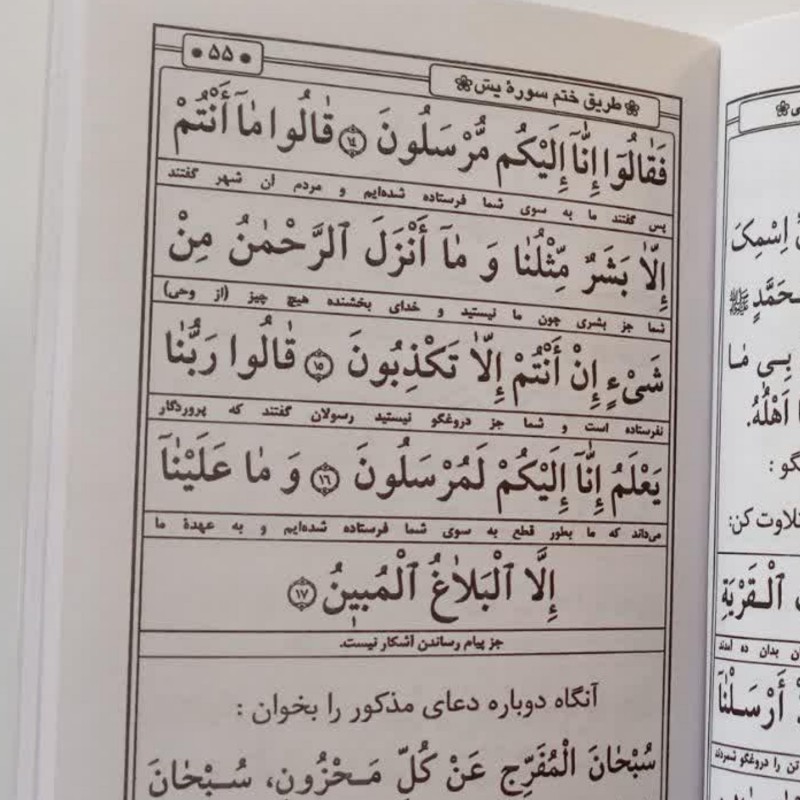 ﴿۵۵﴾
طریق ختم سورهٔ یس
فَقٰالُوٓا إِنّٰآ إِلَيْكُم مُّرْسَلُونَ ﴿۱۴﴾ قٰالُوا مٰآ أَنْتُمْ
پس گفتند ما به سوی شما فرستاده شده‌ایم و مردم آن شهر گفتند
إِلّاٰ بَشَرٌ مِّثْلُنٰا وَ مٰآ أَنْزَلَ ٱلرَّحْمٰنُ مِنْ
شما جز بشری چون ما نیستید و خدای بخشنده هیچ چیز (از وحی)
شَیْءٍ إِنْ أَنْتُمْ إِلّاٰ تَكْذِبُونَ ﴿۱۵﴾ قٰالُوا رَبُّنٰا
نفرستاده است و شما جز دروغگو نیستید رسولان گفتند که پروردگار
يَعْلَمُ إِنّٰآ إِلَيْكُمْ لَمُرْسَلُونَ ﴿۱۶﴾ وَ مٰا عَلَيْنٰآ
می‌داند که ما بطور قطع به سوی شما فرستاده شده‌ایم و به عهدهٔ ما
إِلَّا ٱلْبَلاٰغُ ٱلْمُبِينُ ﴿۱۷﴾
جز پیام رساندن آشکار نیست.
آنگاه دوباره دعای مذکور را بخوان :
سُبْحٰانَ الْمُفَرِّجِ عَنْ كُلِّ مَحْزُونٍ، سُبْحٰانَ
اِسْمِكَ
بِی مٰا
اَهْلُهُ.
تلاوت کن:
ٱلْقَرْيَةِ
بدان ده آمدند
أَرْسَلْنٰآ
تن را دروغگو شمردند